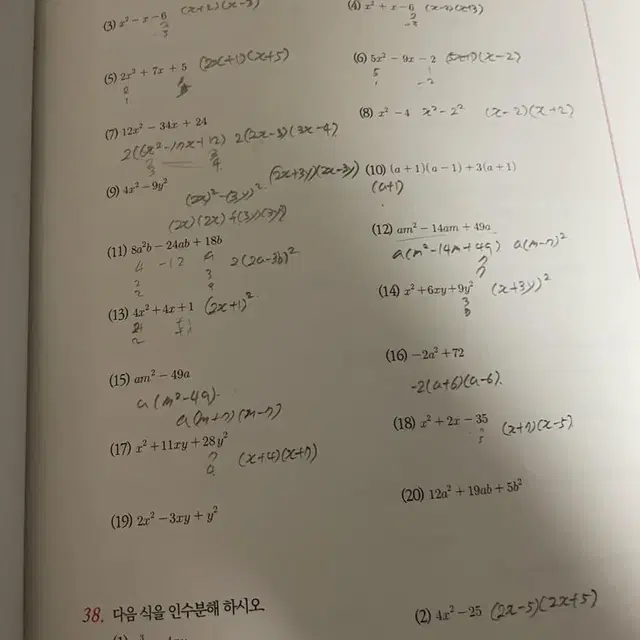 (3) x² − x − 6 (x+2)(x-3)
(4) x² + x − 6 (x-2)(x+3)
(5) 2x² + 7x + 5 (2x+1)(x+5)
(6) 5x² − 9x − 2 (5x+1)(x-2)
(7) 12x² − 34x + 24
2(6x²-17x+12) 2(2x-3)(3x-4)
(8) x² − 4 x²-2² (x-2)(x+2)
(9) 4x² − 9y² (2x)²-(3y)² (2x+3y)(2x-3y)
(10) (a + 1)(a − 1) + 3(a + 1)
(a+1)
(11) 8a²b − 24ab + 18b
4 -12 9 2(2a-3b)²
(12) am² − 14am + 49a
a(m²-14m+49) a(m-7)²
(13) 4x² + 4x + 1 (2x+1)²
(14) x² + 6xy + 9y² (x+3y)²
(15) am² − 49a
a(m²-49)
a(m+7)(m-7)
(16) −2a² + 72
-2(a+6)(a-6).
(17) x² + 11xy + 28y²
(x+4)(x+7)
(18) x² + 2x − 35 (x+7)(x-5)
(19) 2x² − 3xy + y²
(20) 12a² + 19ab + 5b²
38. 다음 식을 인수분해 하시오.
(2) 4x² − 25 (2x-5)(2x+5)